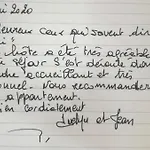 i 2020
eureux ceux qui savent dir
hôte a été très agréable
séjour s'est déroulé dans
dre accueillant et très
onnel. Nous recommanderons
appartement.
en cordialement
Evelyn et Jean